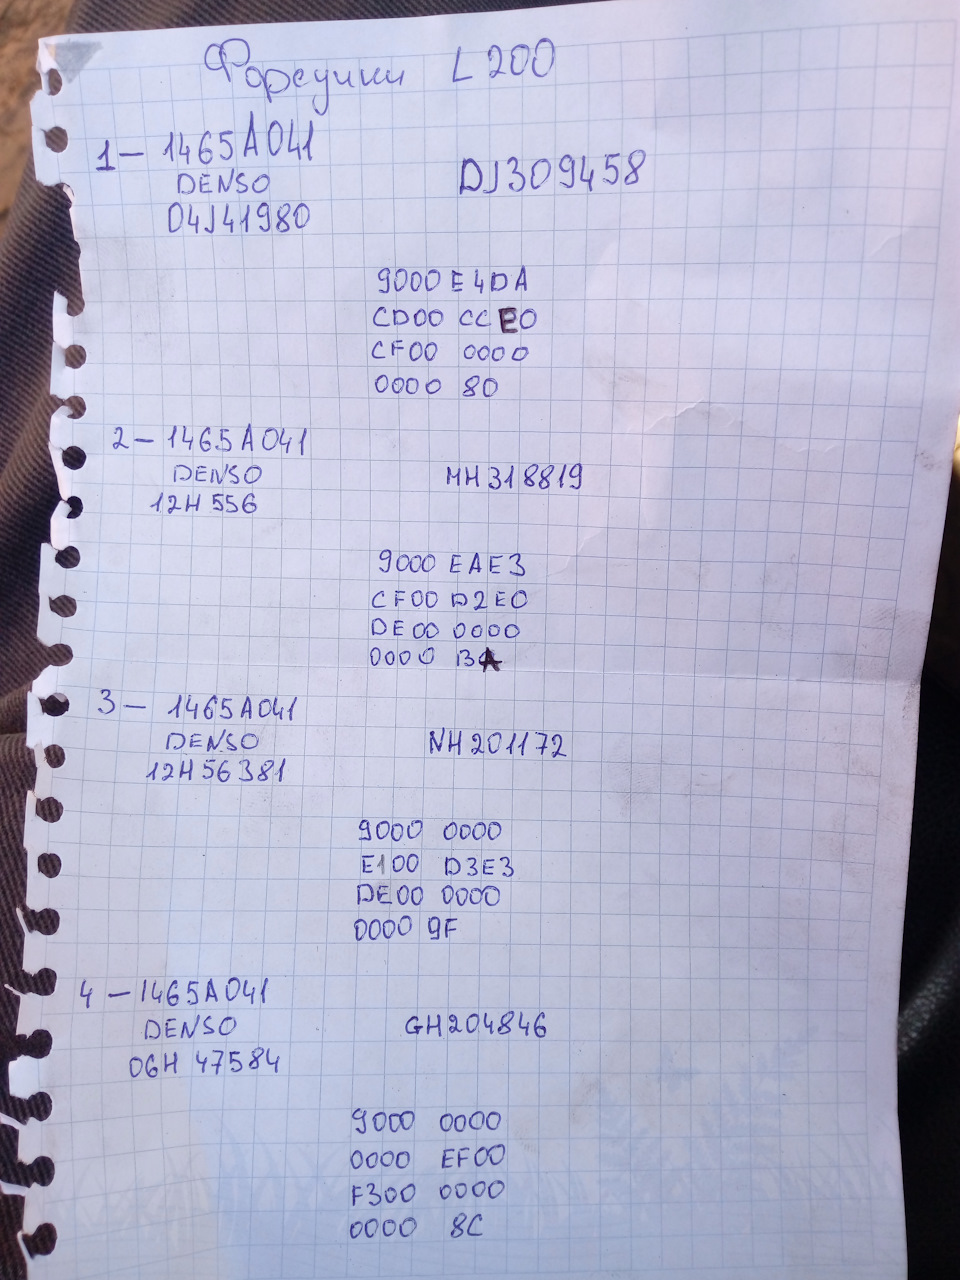 Форсунки L200
1 - 1465A041
DENSO DJ309458
04J41980
9000 E4DA
CD00 CCE0
CF00 0000
0000 80
2 - 1465A041
DENSO MH318819
12H 556
9000 EAE3
CF00 D2E0
DE00 0000
0000 BA
3 - 1465A041
DENSO NH201172
12H56381
9000 0000
E100 D3E3
DE00 0000
0000 9F
4 - 1465A041
DENSO GH204846
06H 47584
9000 0000
0000 EF00
F300 0000
0000 8C